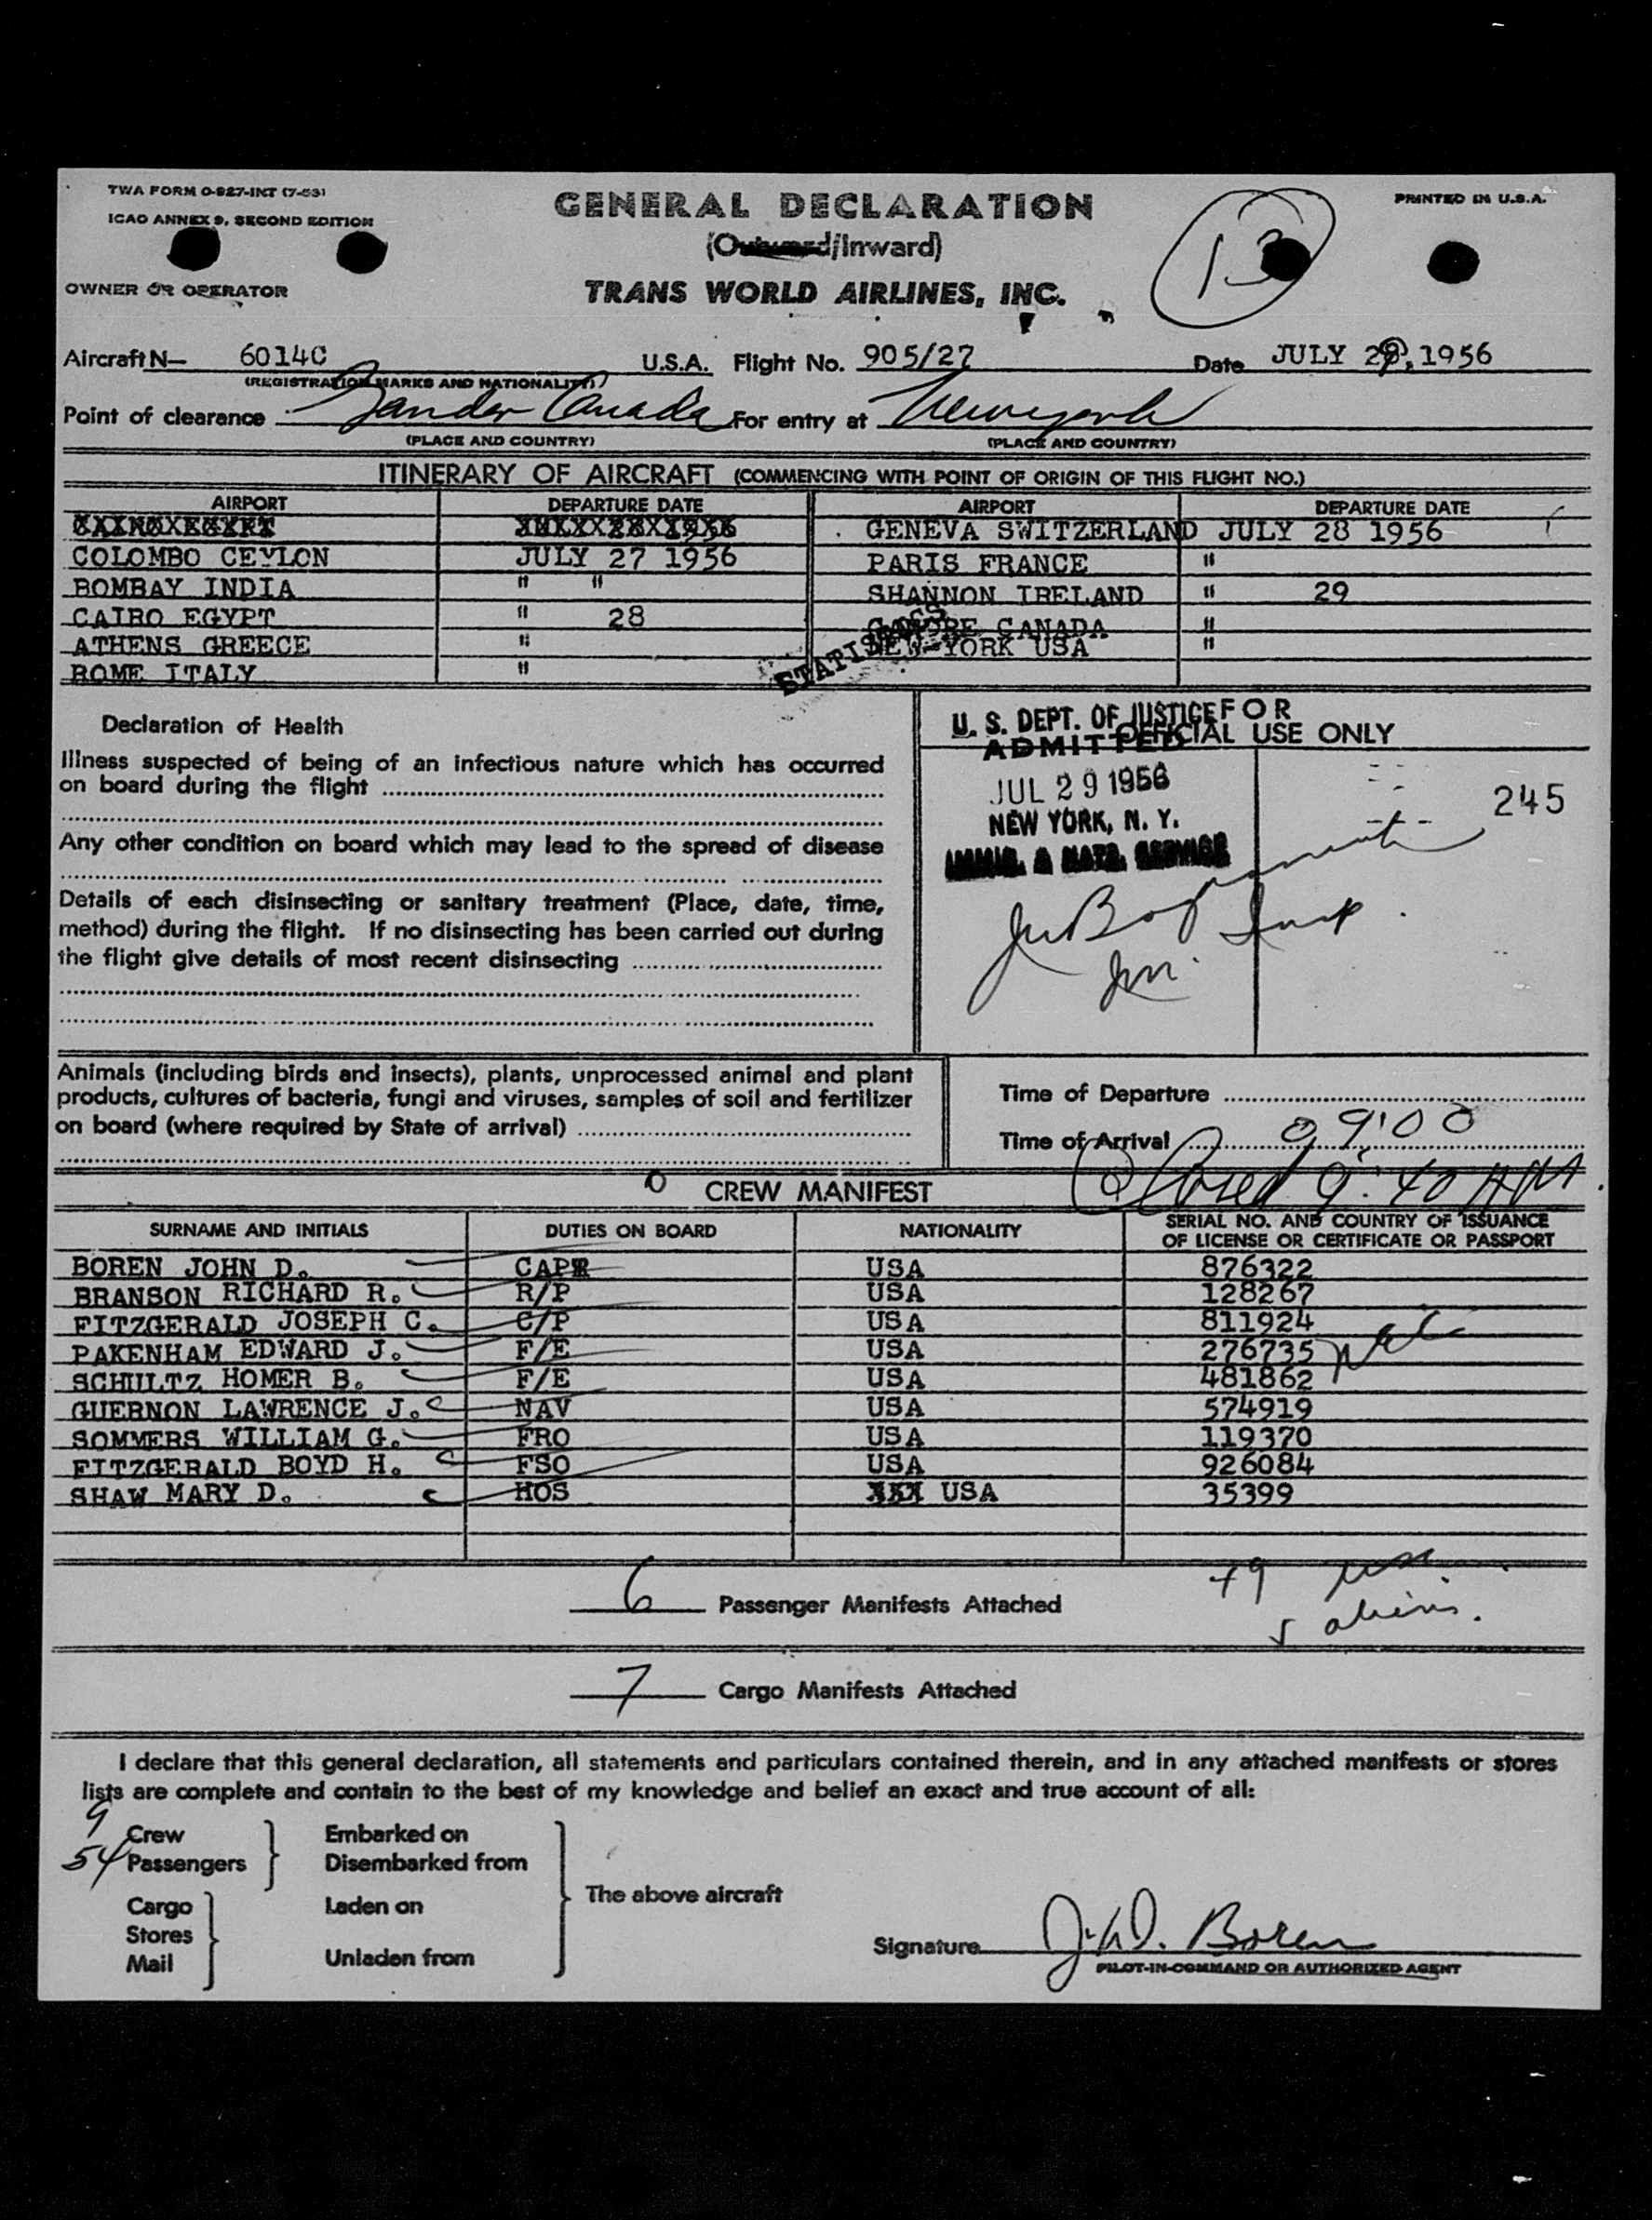 TWA FORM O-927-INT (7-53)
ICAO ANNEX 9, SECOND EDITION
GENERAL DECLARATION
PRINTED IN U.S.A.
(Outward/Inward)
13
OWNER OR OPERATOR
TRANS WORLD AIRLINES, INC.
Aircraft N— 6014C U.S.A. Flight No. 905/27 Date JULY 29, 1956
(REGISTRATION MARKS AND NATIONALITY)
Point of clearance Gander Canada For entry at New York
(PLACE AND COUNTRY) (PLACE AND COUNTRY)
ITINERARY OF AIRCRAFT (COMMENCING WITH POINT OF ORIGIN OF THIS FLIGHT NO.)
AIRPORT DEPARTURE DATE AIRPORT DEPARTURE DATE
GENEVA SWITZERLAND JULY 28 1956
COLOMBO CEYLON JULY 27 1956 PARIS FRANCE "
BOMBAY INDIA " " SHANNON IRELAND " 29
CAIRO EGYPT " 28 CANADA "
ATHENS GREECE " NEW YORK USA "
ROME ITALY "
STATISTICS
Declaration of Health
U. S. DEPT. OF JUSTICE FOR
OFFICIAL USE ONLY
ADMITTED
Illness suspected of being of an infectious nature which has occurred
on board during the flight
JUL 29 1956
245
NEW YORK, N. Y.
Any other condition on board which may lead to the spread of disease
IMMIG. & NATZ. SERVICE
Details of each disinsecting or sanitary treatment (Place, date, time,
method) during the flight. If no disinsecting has been carried out during
the flight give details of most recent disinsecting
Animals (including birds and insects), plants, unprocessed animal and plant
products, cultures of bacteria, fungi and viruses, samples of soil and fertilizer
on board (where required by State of arrival)
Time of Departure
Time of Arrival 09:00
Closed 9:40 AM.
CREW MANIFEST
SURNAME AND INITIALS DUTIES ON BOARD NATIONALITY SERIAL NO. AND COUNTRY OF ISSUANCE
OF LICENSE OR CERTIFICATE OR PASSPORT
BOREN JOHN D. CAP USA 876322
BRANSON RICHARD R. R/P USA 128267
FITZGERALD JOSEPH C. C/P USA 811924
PAKENHAM EDWARD J. F/E USA 276735
SCHULTZ HOMER B. F/E USA 481862
GUERNON LAWRENCE J. NAV USA 574919
SOMMERS WILLIAM G. FRO USA 119370
FITZGERALD BOYD H. FSO USA 926084
SHAW MARY D. HOS XXX USA 35399
6 Passenger Manifests Attached
49 usc
5 aliens.
7 Cargo Manifests Attached
I declare that this general declaration, all statements and particulars contained therein, and in any attached manifests or stores
lists are complete and contain to the best of my knowledge and belief an exact and true account of all:
9 Crew Embarked on
54 Passengers Disembarked from
The above aircraft
Cargo Laden on
Stores
Mail Unladen from
Signature J. D. Boren
PILOT-IN-COMMAND OR AUTHORIZED AGENT